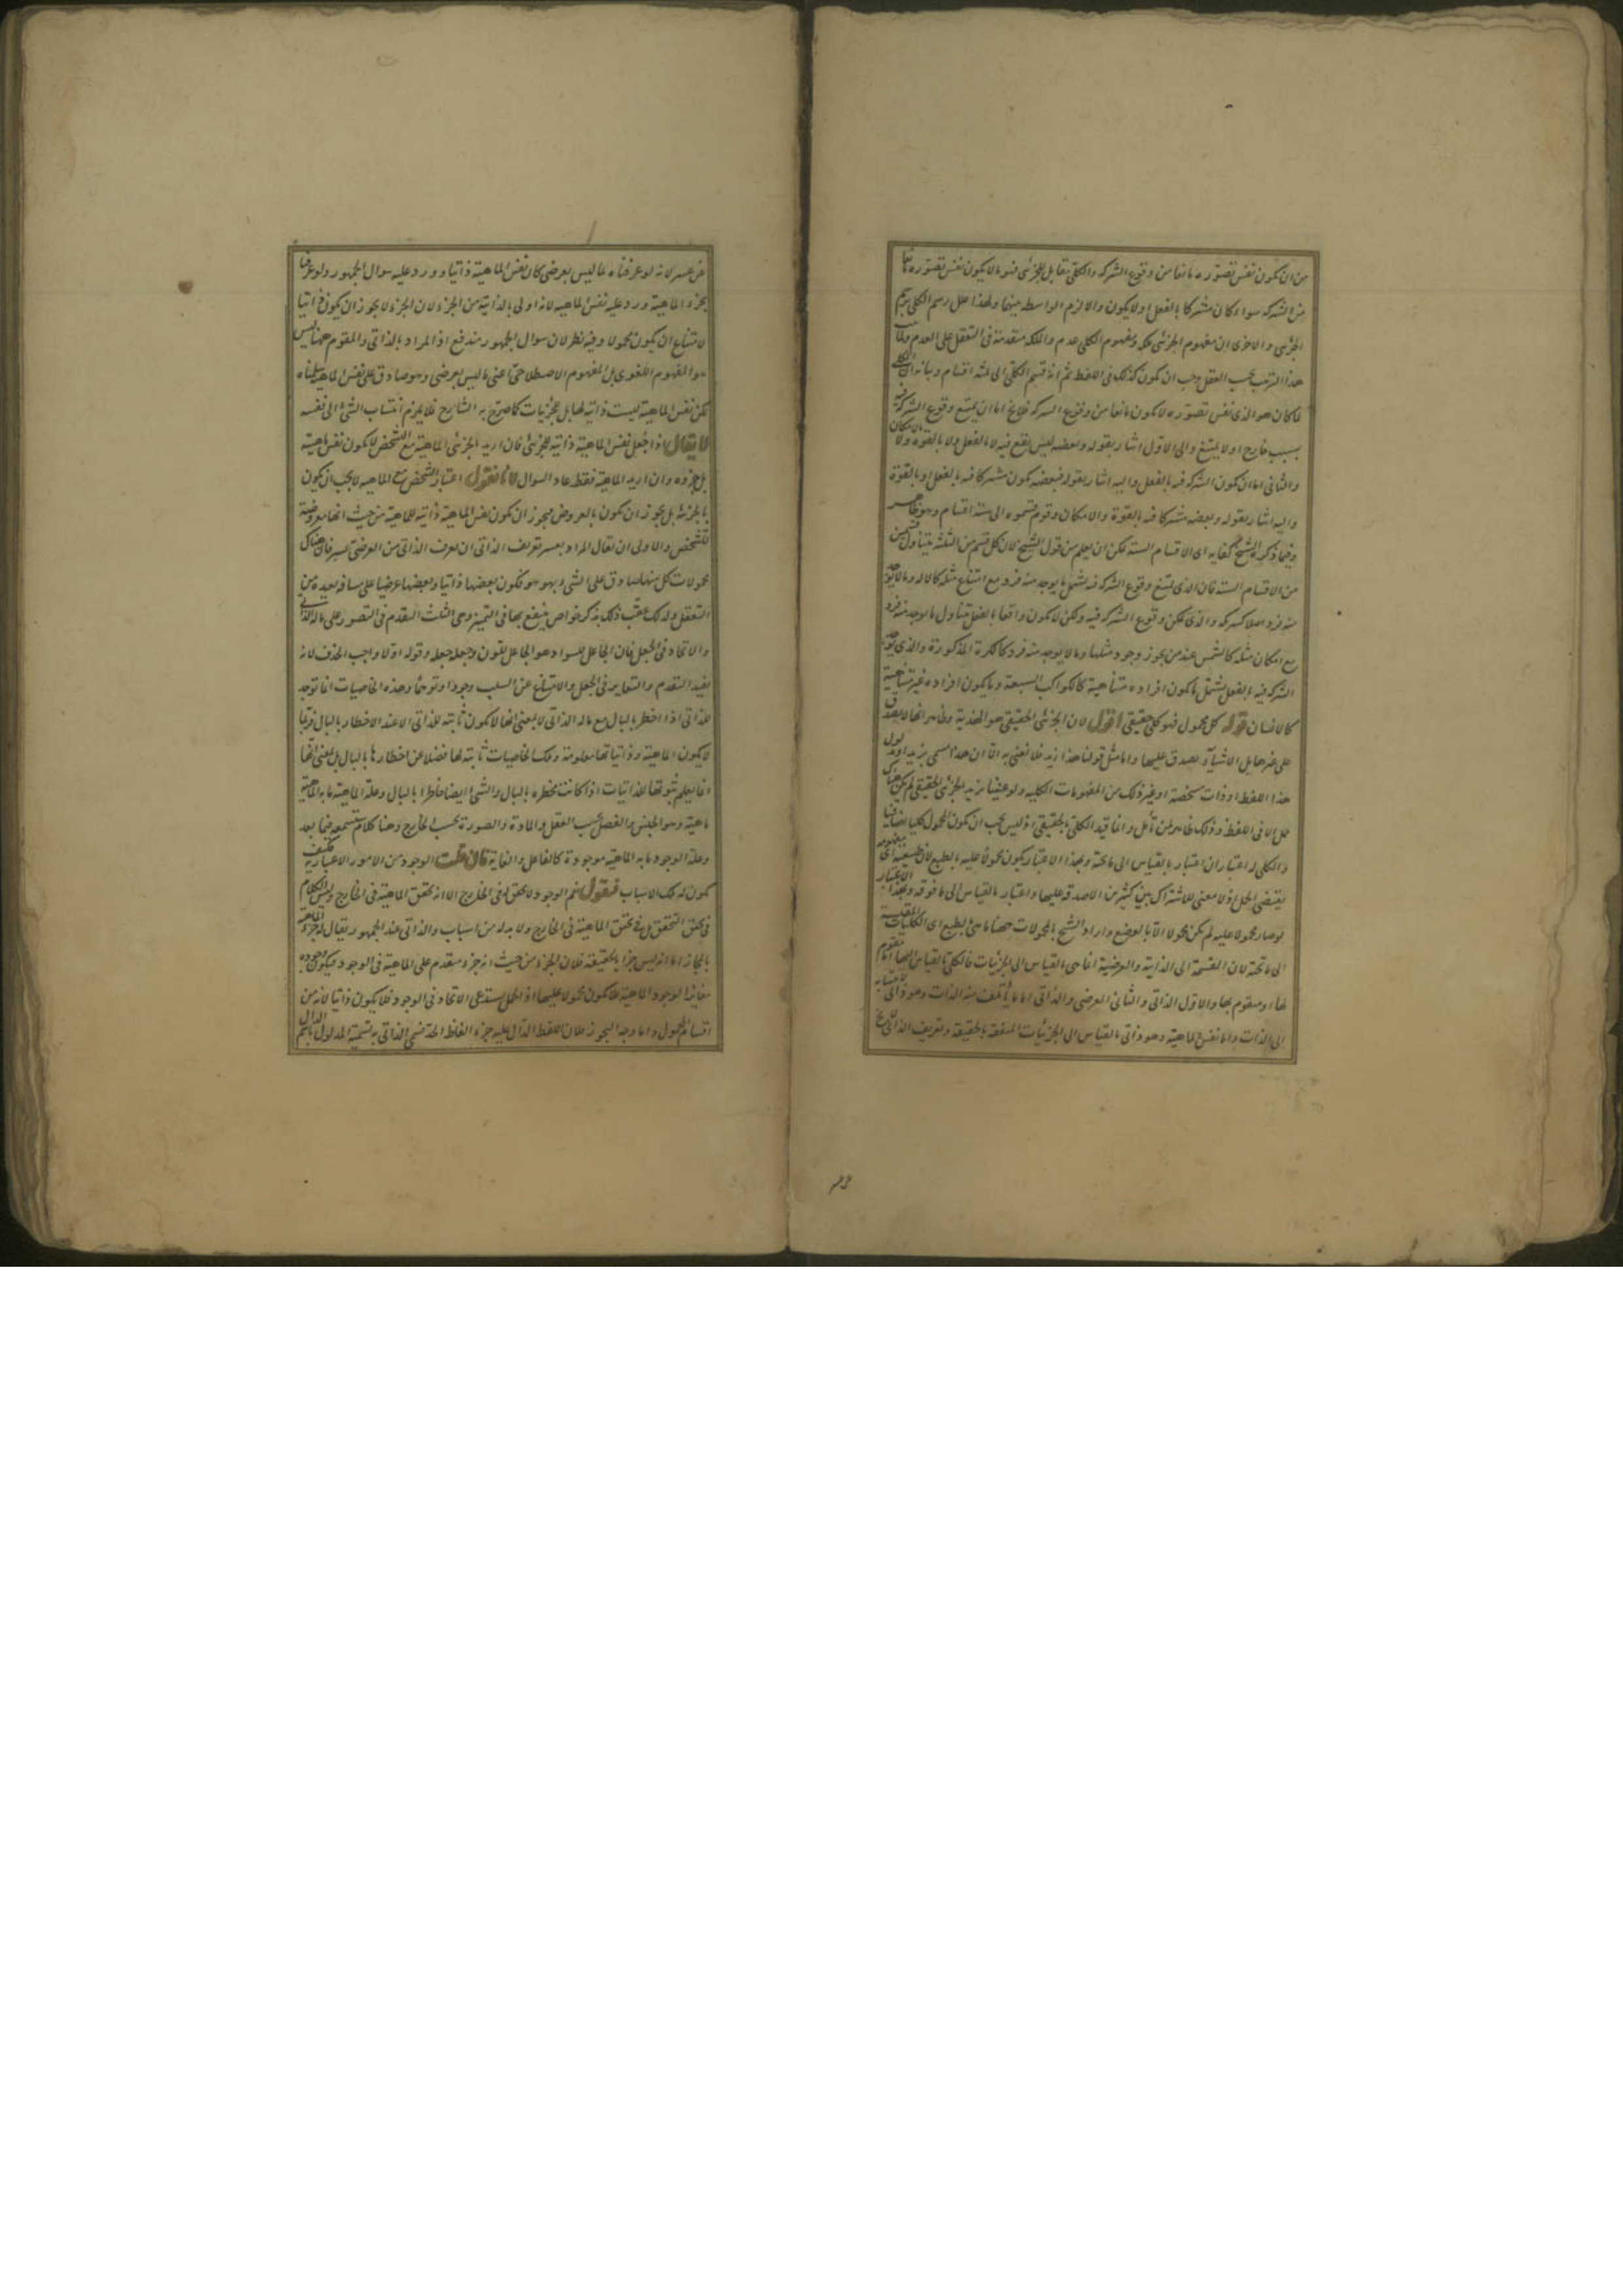 من ان يكون نفس تصوره مانعا من وقوع الشركة والكلي يقابل الجزئي فهو ما لا يكون نفس تصوره مانعا
من الشركة سواء كان مشتركا بالفعل او لا يكون والا لزم الواسطة بينهما ولهذا علل رسم الكلي برسم
الجزئي والاحرى ان مفهوم الجزئي ملكة ومفهوم الكلي عدم والملكة متقدمة في التعقل على العدم ولما
هذا الترتيب بحسب العقل وجب ان يكون كذلك في اللفظ ثم انه قسم الكلي الى ثلثه اقسام وبيانه ان الكلي
لما كان هو الذي نفس تصوره لا يكون مانعا من وقوع الشركه فلا يخ اما ان يمتنع وقوع الشركة فيه
بسبب خارج او لا يمتنع والى الاول اشار بقوله وبعضه ليس يقع فيه لا بالفعل ولا بالقوه ولا بالامكان
والثاني اما ان يكون الشركة فيه بالفعل واليه اشار بقوله فبعضه يكون مشتركا فيه بالفعل او بالقوة
واليه اشار بقوله وبعضه مشتركا فيه بالقوة والامكان وقوم قسموه الى ستة اقسام وهو ظاهر
وفيما ذكره الشيخ كفايه اى الاقسام الستة يمكن ان يعلم من قول الشيخ لان كل قسم من الثلثة يتناول قسمين
من الاقسام الستة فان الذي يمتنع وقوع الشركة فيه يشمل ما يوجد منه فرد مع امتناع مثله كالاله وما لا يوجد
منه فرد اصلا كشركه والذي يمكن وقوع الشركة فيه ولكن لا يكون واقعا بالفعل يتناول ما يوجد منه فرد
مع امكان مثله كالشمس عند من يجوز وجود مثلها وما لا يوجد منه فرد كالكرة المذكورة والذي يوجد
الشركة فيه بالفعل يشمل ما يكون افراده متناهية كالكواكب السبعة وما يكون افراده غير متناهية
كالانسان قوله كل محمول فهو كلي حقيقي اقول لان الجزئي الحقيقي هو الهذية وظاهر انها لا يصدق
على غيرها بل الاشياء يصدق عليها واما مثل قولنا هذا زيد فلا نعني به الا ان هذا مسمى بزيد او مدلول
هذا اللفظ او ذات مشخصة او غير ذلك من المفهومات الكلية ولو عنينا بزيد الجزئي الحقيقي لم يكن هناك
حمل الا في اللفظ وذلك ظاهر لمن تأمل وانما قيد الكلي بالحقيقي اذ ليس يجب ان يكون المحمول كليا اضافيا
والكلي له اعتباران اعتبار بالقياس الى ما تحته وبهذا الاعتبار يكون محمولا عليه بالطبع لان طبيعته اى مفهومه
يقتضي الحمل اذ لا معنى للاشتراك بين كثيرين الا صدقه عليها واعتبار بالقياس الى ما فوقه وبهذا الاعتبار
لو صار محمولا عليه لم يكن محمولا الا بالوضع واراد الشيخ بالمحمولات ههنا ما هي بالطبع اى الكليات المقيسة
الى ما تحته لان القسمة الى الذاتية والعرضية انما هي بالقياس الى الجزئيات فالكلي بالقياس اليها اما مقوم
لها او متقوم بها والاول الذاتي والثاني العرضي والذاتي اما ما يأتلف منه الذات وهو ذاتي بالقياس
الى الذات واما نفس الماهية وهو ذاتي بالقياس الى الجزئيات المتفقة بالحقيقة وتعريف الذاتي لا يخ
عن عسر لانه لو عرفناه بما ليس بعرضي كان نفس الماهية ذاتيا وورد عليه سوال الجمهور ولو عرفنا
بجزء الماهية ورد عليه نفس الماهية لانه اولى بالذاتية من الجزء لان الجزء لا يجوز ان يكون ذاتيا
لامتناع ان يكون محمولا وفيه نظر لان سوال الجمهور مندفع اذ المراد بالذاتي والمقوم ههنا ليس
هو المفهوم اللغوى بل المفهوم الاصطلاحي اعني ما ليس بعرضي وهو صادق على نفس الماهية سلمناه
لكن نفس الماهية ليست ذاتية لها بل للجزئيات كما صرح به الشارح فلا يلزم انتساب الشئ الى نفسه
لا يقال اذا جعل نفس الماهية ذاتية للجزئي فان اريد الجزئي الماهية مع التشخص لا يكون نفس ماهية
بل جزؤه وان اريد الماهية فقط عاد السوال لانا نقول اعتبار التشخص مع الماهية لا يجب ان يكون
بالجزئية بل يجوز ان يكون بالعروض فيجوز ان يكون نفس الماهية ذاتية للماهية من حيث انها معروضة
للتشخص والاولى ان يقال المراد بعسر تعريف الذاتي ان يعرف الذاتي من العرضي عسير فان هناك
محمولات كل منها صادق على الشئ وبهو هو فيكون بعضها ذاتيا وبعضها عرضيا على مسافة بعيدة من
التعقل ولذلك عقب ذلك بذكر خواص ينتفع بها في التميز وهي الثلث التقدم في التصور على ما له الذاتي
والاتحاد في الجعل فان الجاعل للسواد هو الجاعل للون وجعله جعله وقوله اولا واجب الحذف لانه
يفيد التقدم والتغاير في الجعل والامتناع عن السلب وجودا وتوهما وهذه الخاصيات انما توجد
للذاتي اذا اخطر بالبال مع ما له الذاتي لا بمعنى انها لا يكون ثابته للذاتي الا عند الاخطار بالبال فربما
لا يكون الماهية وذاتياتها معلومة وتلك الخاصيات ثابتة لها فضلا عن اخطارها بالبال بل بمعنى انها
انما يعلم ثبوتها للذاتيات اذا كانت مخطرة بالبال والشئ ايضا خاطرا بالبال وعلة الماهية ما به الماهية
ماهية وهو الجنس والفصل بحسب العقل والمادة والصورة بحسب الخارج وهنا كلام ستسمعه فيما بعد
وعلة الوجود ما به الماهية موجودة كالفاعل والغاية فان قلت الوجود من الامور الاعتبارية فكيف
يكون له تلك الاسباب فنقول نعم الوجود لا تحقق له في الخارج الا انه يحقق الماهية في الخارج وليس الكلام
في تحقق التحقق بل في تحقق الماهية في الخارج ولا بد له من اسباب والذاتي عند الجمهور يقال له جزء الماهية
بالمجاز اما انه ليس جزأ بالحقيقة فلان الجزء من حيث انه جزء متقدم على الماهية في الوجود فيكون وجوده
مغايرا لوجود الماهية فلا يكون محمولا عليها اذ الحمل يستدعي الاتحاد في الوجود فلا يكون ذاتيا لانه من
اقسام المحمول واما وجه التجوز فلان اللفظ الدال عليه جزء الفاظ الحد فسمي الذاتي به تسمية المدلول باسم الدال